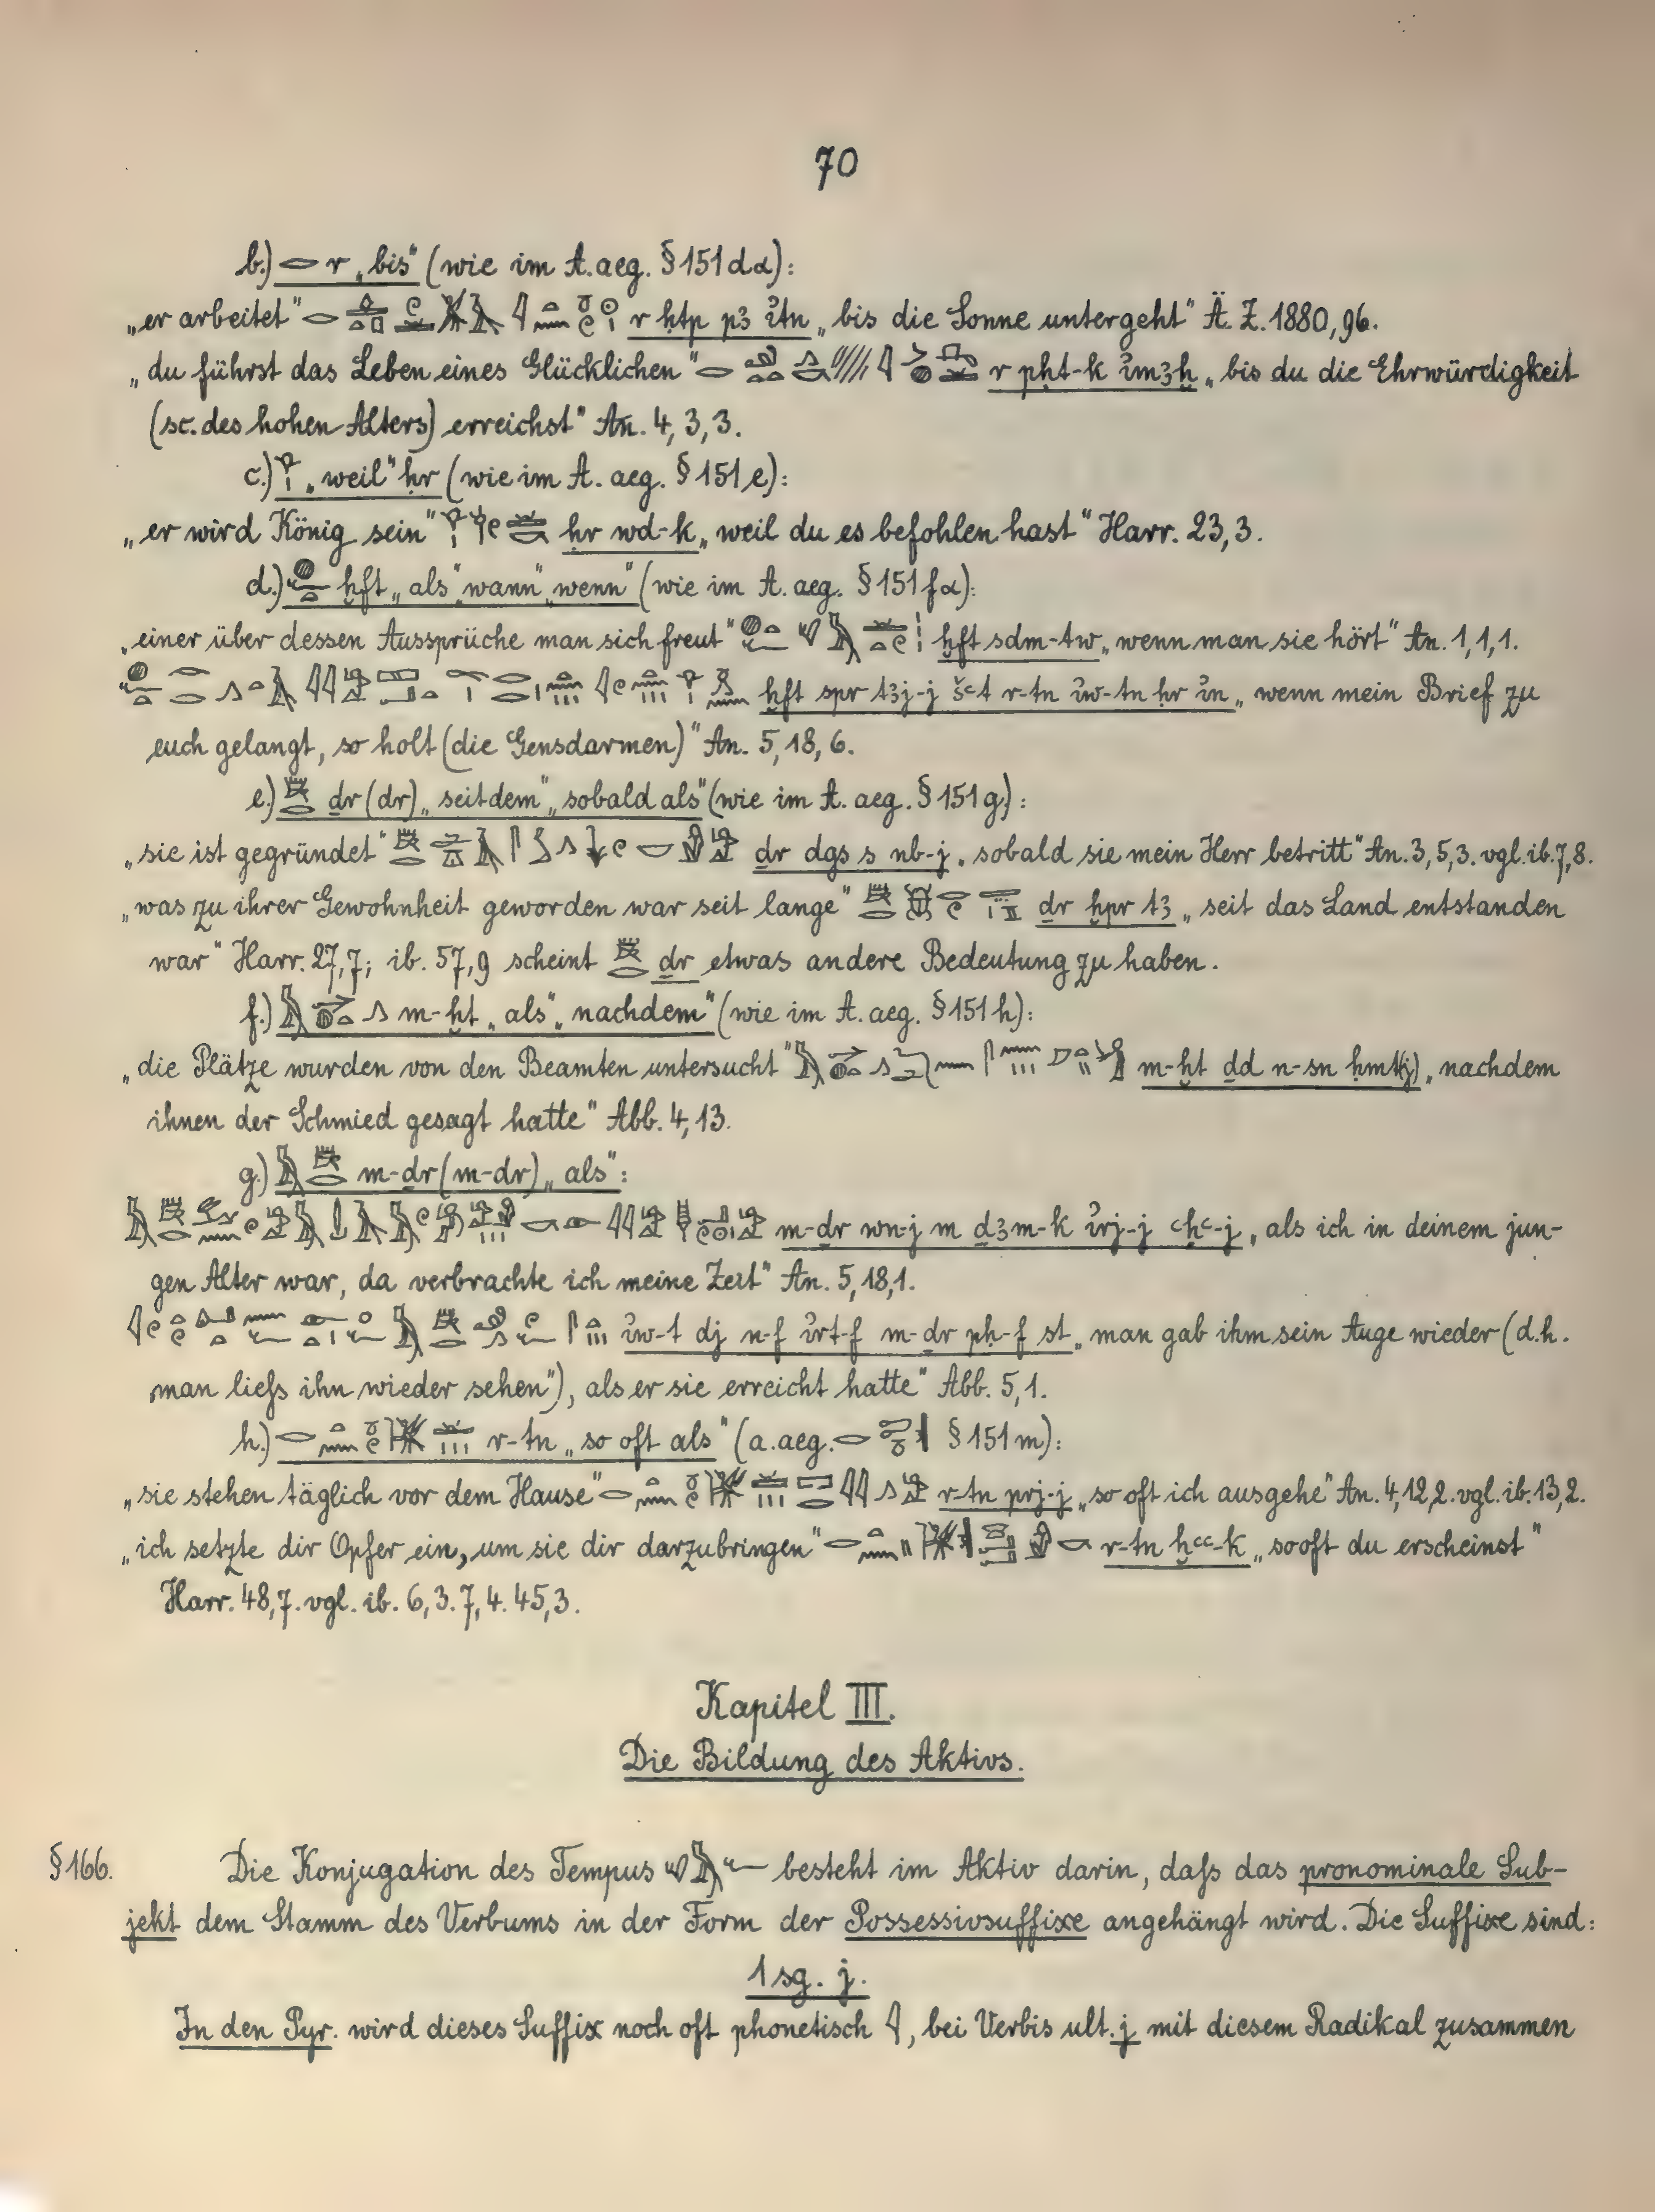 70
b.) r „bis“ (wie im A. aeg. § 151 d α):
„er arbeitet“ r ḥtp pꜣ ỉtn „bis die Sonne untergeht“ Ä. Z. 1880, 96.
„du führst das Leben eines Glücklichen“ r pḥt-k ỉmꜣḫ „bis du die Ehrwürdigkeit
(sc. des hohen Alters) erreichst“ An. 4, 3, 3.
c.) „weil“ ḥr (wie im A. aeg. § 151 e):
„er wird König sein“ ḥr wd-k „weil du es befohlen hast“ Harr. 23, 3.
d.) ḫft „als“ „wann“ „wenn“ (wie im A. aeg. § 151 f α):
„einer über dessen Aussprüche man sich freut“ ḫft sdm-tw „wenn man sie hört“ An. 1, 1, 1.
ḫft spr tꜣj-j šꜥt r-tn ỉw-tn ḥr ỉn „wenn mein Brief zu
euch gelangt, so holt (die Gensdarmen)“ An. 5, 18, 6.
e.) ḏr (dr) „seitdem“ „sobald als“ (wie im A. aeg. § 151 g):
„sie ist gegründet“ ḏr dgs s nb-j „sobald sie mein Herr betritt“ An. 3, 5, 3. vgl. ib. 7, 8.
„was zu ihrer Gewohnheit geworden war seit lange“ ḏr ḫpr tꜣ „seit das Land entstanden
war“ Harr. 27, 7; ib. 57, 9 scheint ḏr etwas andere Bedeutung zu haben.
f.) m-ḫt „als“ „nachdem“ (wie im A. aeg. § 151 h):
„die Plätze wurden von den Beamten untersucht“ m-ḫt ḏd n-sn ḥmt(j) „nachdem
ihnen der Schmied gesagt hatte“ Abb. 4, 13.
g.) m-ḏr (m-dr) „als“:
m-ḏr wn-j m ḏꜣm-k ỉrj-j ꜥḥꜥ-j „als ich in deinem jun-
gen Alter war, da verbrachte ich meine Zeit“ An. 5, 18, 1.
ỉw-t dj n-f ỉrt-f m-ḏr pḥ-f st „man gab ihm sein Auge wieder (d. h.
man liefs ihn wieder sehen“), als er sie erreicht hatte“ Abb. 5, 1.
h.) r-tn „so oft als“ (a. aeg. § 151 m):
„sie stehen täglich vor dem Hause“ r-tn prj-j „so oft ich ausgehe“ An. 4, 12, 2. vgl. ib. 13, 2.
„ich setzte dir Opfer ein, um sie dir darzubringen“ r-tn ḫꜥꜥ-k „so oft du erscheinst“
Harr. 48, 7. vgl. ib. 6, 3. 7, 4. 45, 3.
Kapitel III.
Die Bildung des Aktivs.
§ 166. Die Konjugation des Tempus besteht im Aktiv darin, dafs das pronominale Sub-
jekt dem Stamm des Verbums in der Form der Possessivsuffixe angehängt wird. Die Suffixe sind:
1 sg. j.
In den Pyr. wird dieses Suffix noch oft phonetisch 𓇋, bei Verbis ult. j mit diesem Radikal zusammen